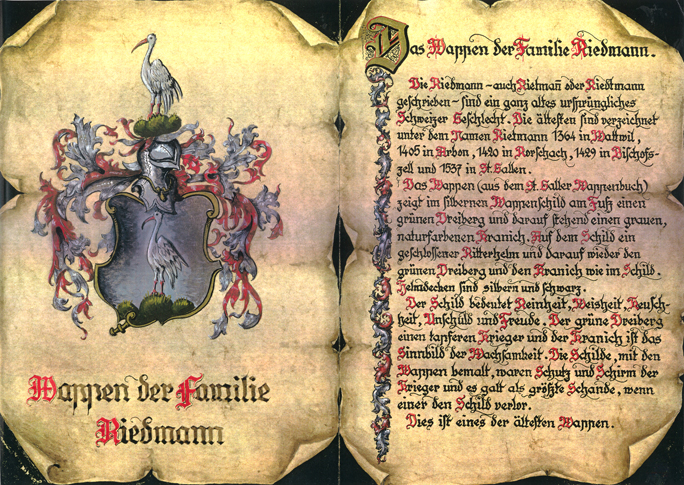 Wappen der Familie
Riedmann
Das Wappen der Familie Riedmann.
Die Riedmann - auch Rietmañ oder Riedtmann
geschrieben - sind ein ganz altes ursprüngliches
Schweizer Geschlecht. Die ältesten sind verzeichnet
unter dem Namen Rietmann 1364 in Wattwil,
1405 in Arbon, 1420 in Rorschach, 1429 in Bischofs-
zell und 1537 in St. Gallen.
Das Wappen (aus dem St. Galler Wappenbuch)
zeigt im silbernen Wappenschild am Fuß einen
grünen Dreiberg und darauf stehend einen grauen,
naturfarbenen Kranich. Auf dem Schild ein
geschlossener Ritterhelm und darauf wieder den
grünen Dreiberg und den Kranich wie im Schild.
Helmdecken sind silbern und schwarz.
Der Schild bedeutet Reinheit, Weisheit, Keusch-
heit, Unschuld und Freude. Der grüne Dreiberg
einen tapferen Krieger und der Kranich ist das
Sinnbild der Wachsamkeit. Die Schilde, mit den
Wappen bemalt, waren Schutz und Schirm der
Krieger und es galt als größte Schande, wenn
einer den Schild verlor.
Dies ist eines der ältesten Wappen.